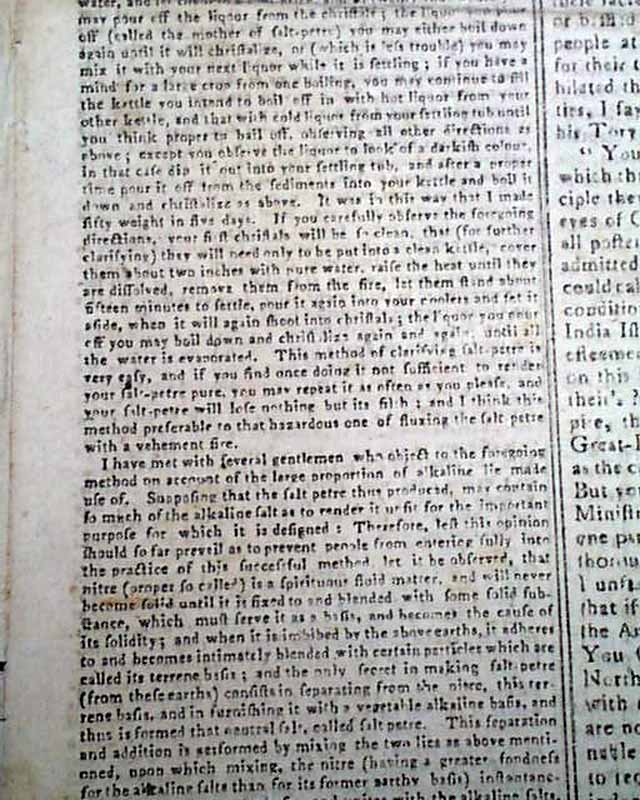 may pour off the liquor from the christals; the liquor
off (called the mother of salt-petre) you may either boil down
again until it will christalize, or (which is less trouble) you may
mix it with your next liquor while it is settling; if you have a
mind for a large crop from one boiling, you may continue to fill
the kettle you intend to boil off in with hot liquor from your
other kettle, and that with cold liquor from your settling tub until
you think proper to boil off, observing all other directions as
above; except you observe the liquor to look of a darkish colour,
in that case dip it out into your settling tub, and after a proper
time pour it off from the sediments into your kettle and boil it
down and christalize as above. It was in this way that I made
fifty weight in five days. If you carefully observe the foregoing
directions, your first christals will be so clean, that (for further
clarifying) they will need only to be put into a clean kettle, cover
them about two inches with pure water, raise the heat until they
are dissolved, remove them from the fire, let them stand about
fifteen minutes to settle, pour it again into your coolers and set it
aside, when it will again shoot into christals; the liquor you pour
off you may boil down and christalize again and again, until all
the water is evaporated. This method of clarifying salt-petre is
very easy, and if you find once doing it not sufficient to render
your salt-petre pure, you may repeat it as often as you please, and
your salt-petre will lose nothing but its filth; and I think this
method preferable to that hazardous one of fluxing the salt petre
with a vehement fire.
I have met with several gentlemen who object to the foregoing
method on account of the large proportion of alkaline lie made
use of. Supposing that the salt petre thus produced, may contain
so much of the alkaline salt as to render it unfit for the important
purpose for which it is designed: Therefore, lest this opinion
should so far prevail as to prevent people from entering fully into
the practice of this successful method, let it be observed, that
nitre (proper so called) is a spirituous fluid matter, and will never
become solid until it is fixed to and blended with some solid sub-
stance, which must serve it as a basis, and becomes the cause of
its solidity; and when it is imbibed by the above earths, it adheres
to and becomes intimately blended with certain particles which are
called its terrene basis; and the only secret in making salt-petre
(from these earths) consists in separating from the nitre, this ter-
rene basis, and in furnishing it with a vegetable alkaline basis, and
thus is formed that neutral salt, called salt petre. This separation
and addition is performed by mixing the two lies as above menti-
oned, upon which mixing, the nitre (having a greater fondness
for the alkaline salts than for its former earthy basis) instantane-
with the alkaline salts,
people at
for their
ties, I say
his Tory
" You
which th
ciple the
eyes of
all
admitted
could
condition
India Isl
on this
Great-
as the c
But yo
Minist
one par
I unf
that if
the A
You
North
with
are no
to